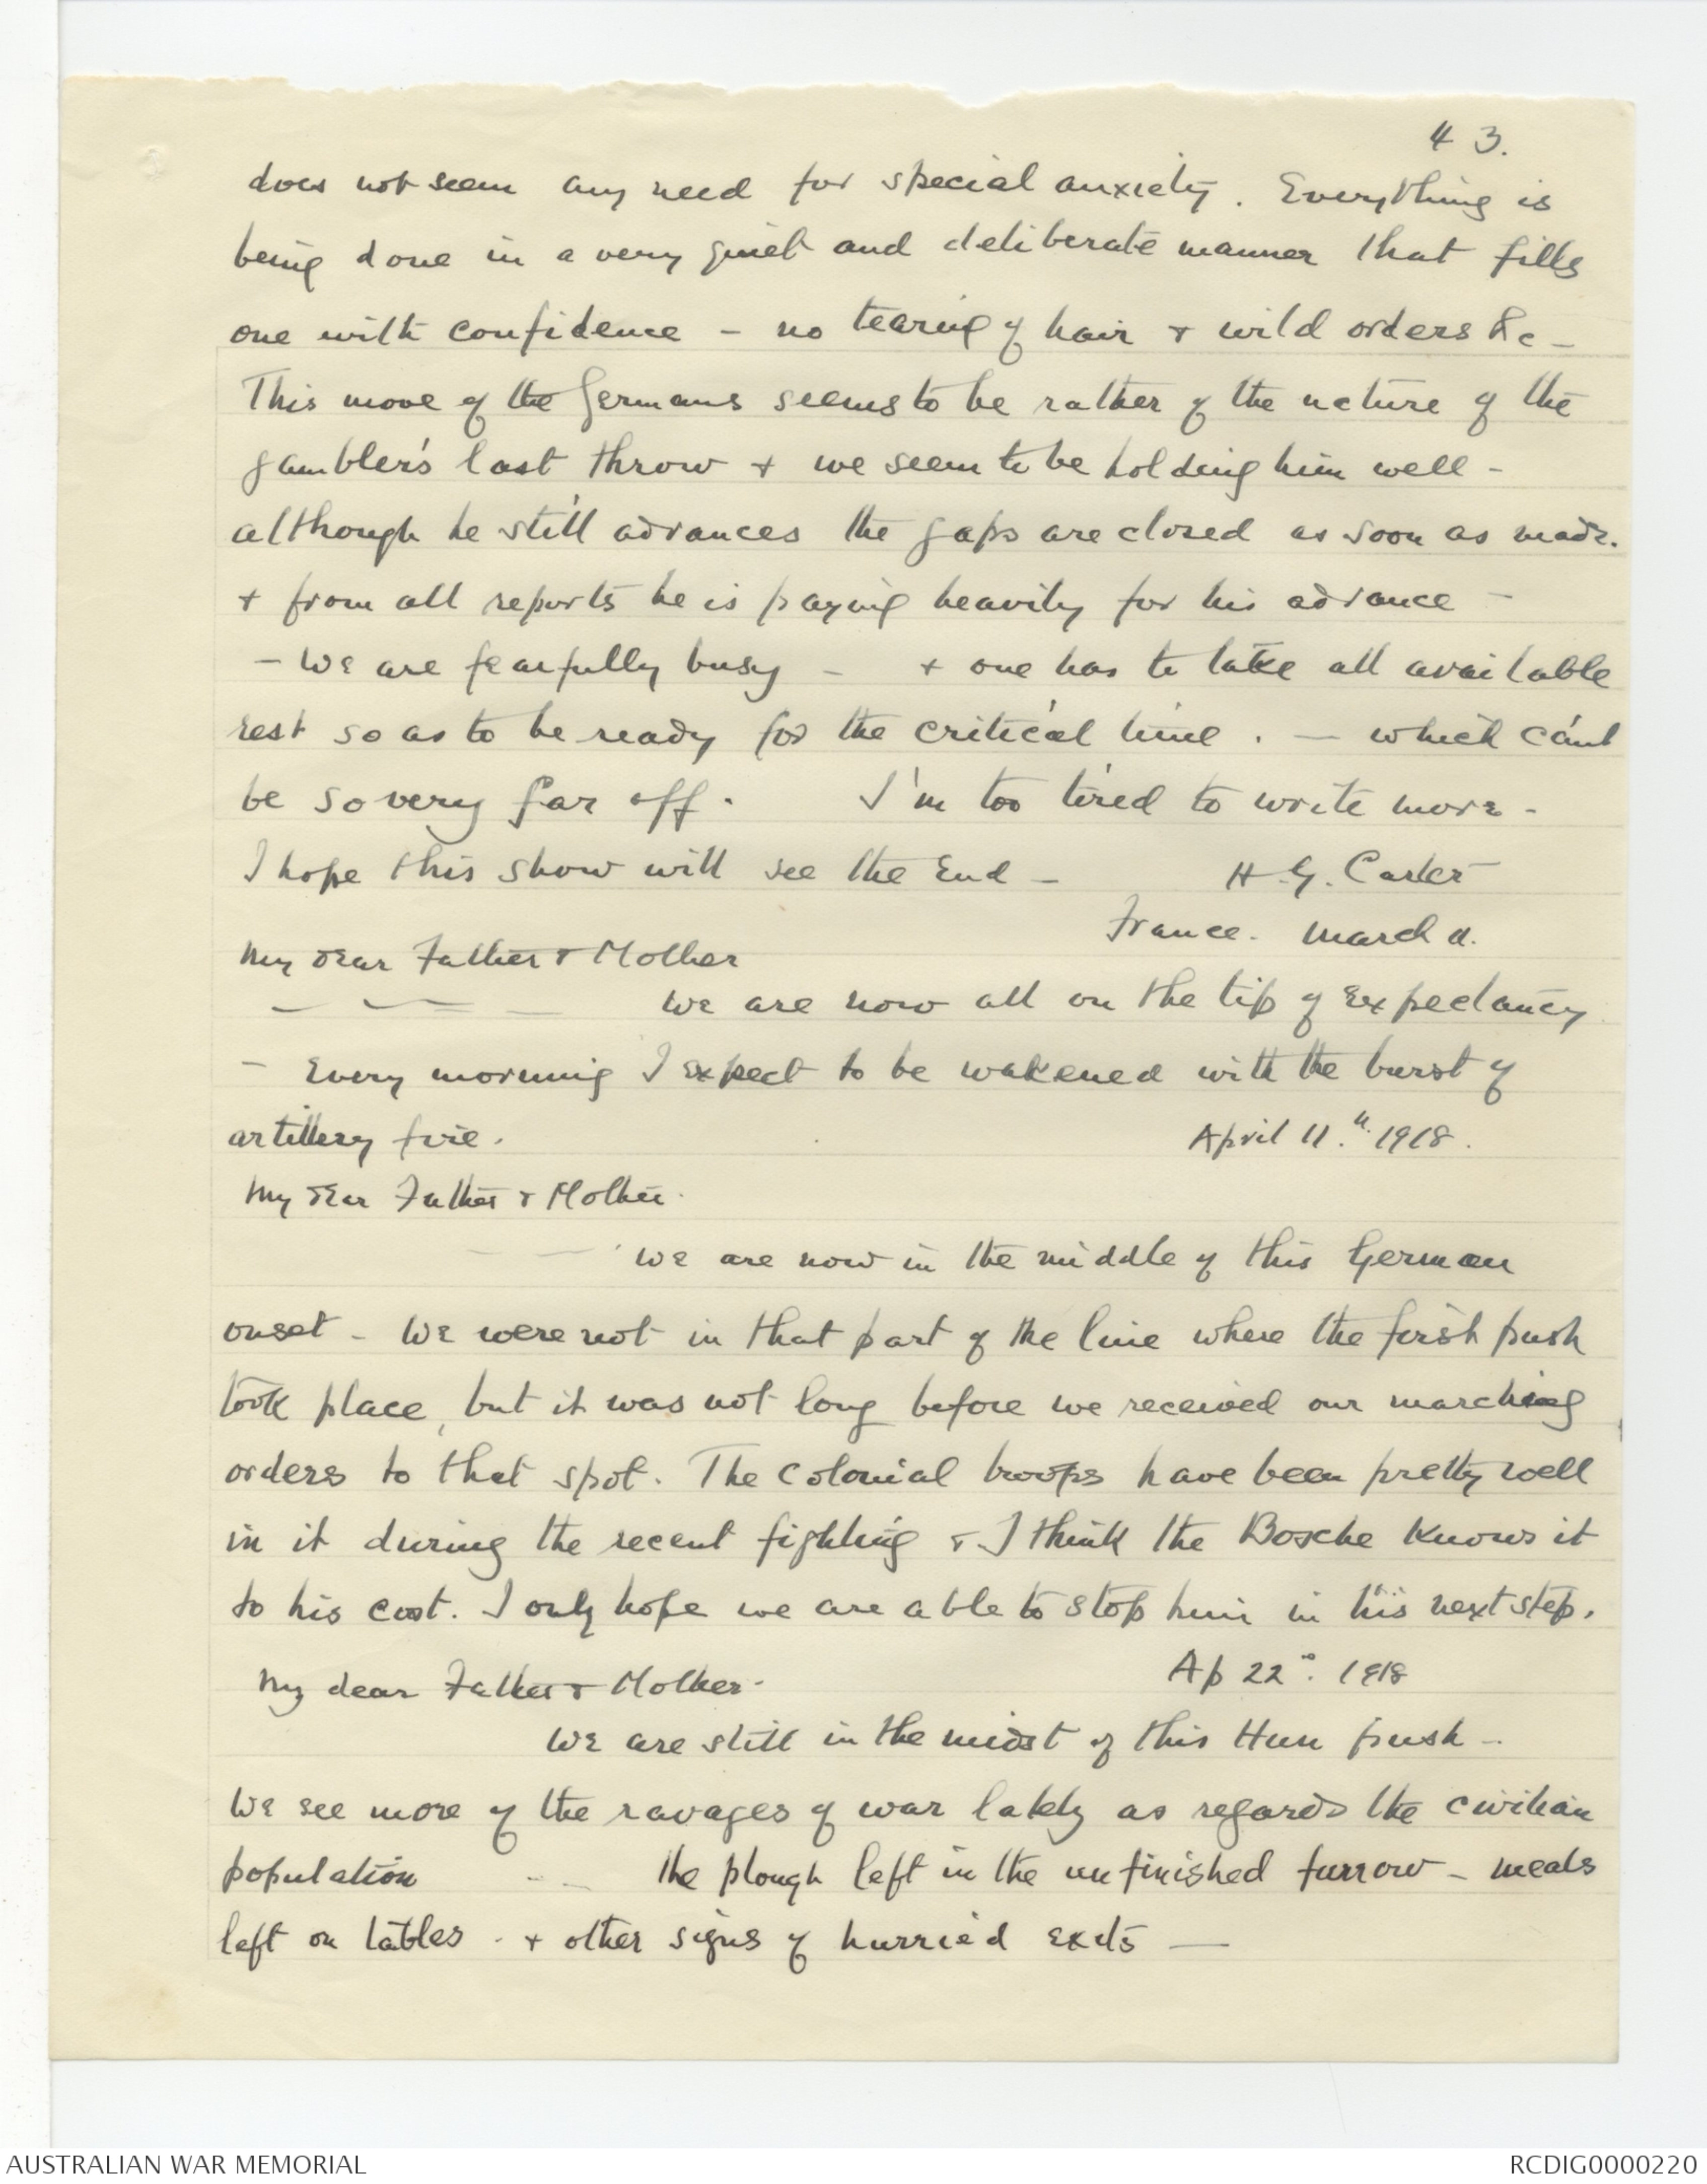 43.
does not seem any need for special anxiety. Everything is
being done in a very quiet and deliberate manner that fills
one with confidence - no tearing of hair + wild orders &c -
This move of the Germans seems to be rather of the nature of the
gambler's last throw + we seem to be holding him well -
although he still advances the gaps are closed as soon as made.
+ from all reports he is paying heavily for his advance -
- We are fearfully busy - + one has to take all available
rest so as to be ready for the critical time. - which can't
be so very far off. I'm too tired to write more -
I hope this show will see the End - H.G. Carter
France. March
My dear Father + Mother
- - - - we are now all on the tip of Expectancy
- Every morning I expect to be wakened with the burst of
artillery fire. April 11.th 1918.
My dear Father + Mother.
- - We are now in the middle of this German
onset - We were not in that part of the line where the first push
took place, but it was not long before we received our marching
orders to that spot. The Colonial troops have been pretty well
in it during the recent fighting + I think the Bosche knows it
to his cost. I only hope we are able to stop him in his next step.
My dear Father + Mother - Ap 22. 1918
We are still in the midst of this Hun push -
We see more of the ravages of war lately as regards the civilian
population - - the plough left in the unfinished furrow - meals
left on tables - + other signs of hurried exits -
AUSTRALIAN WAR MEMORIAL RCDIG0000220